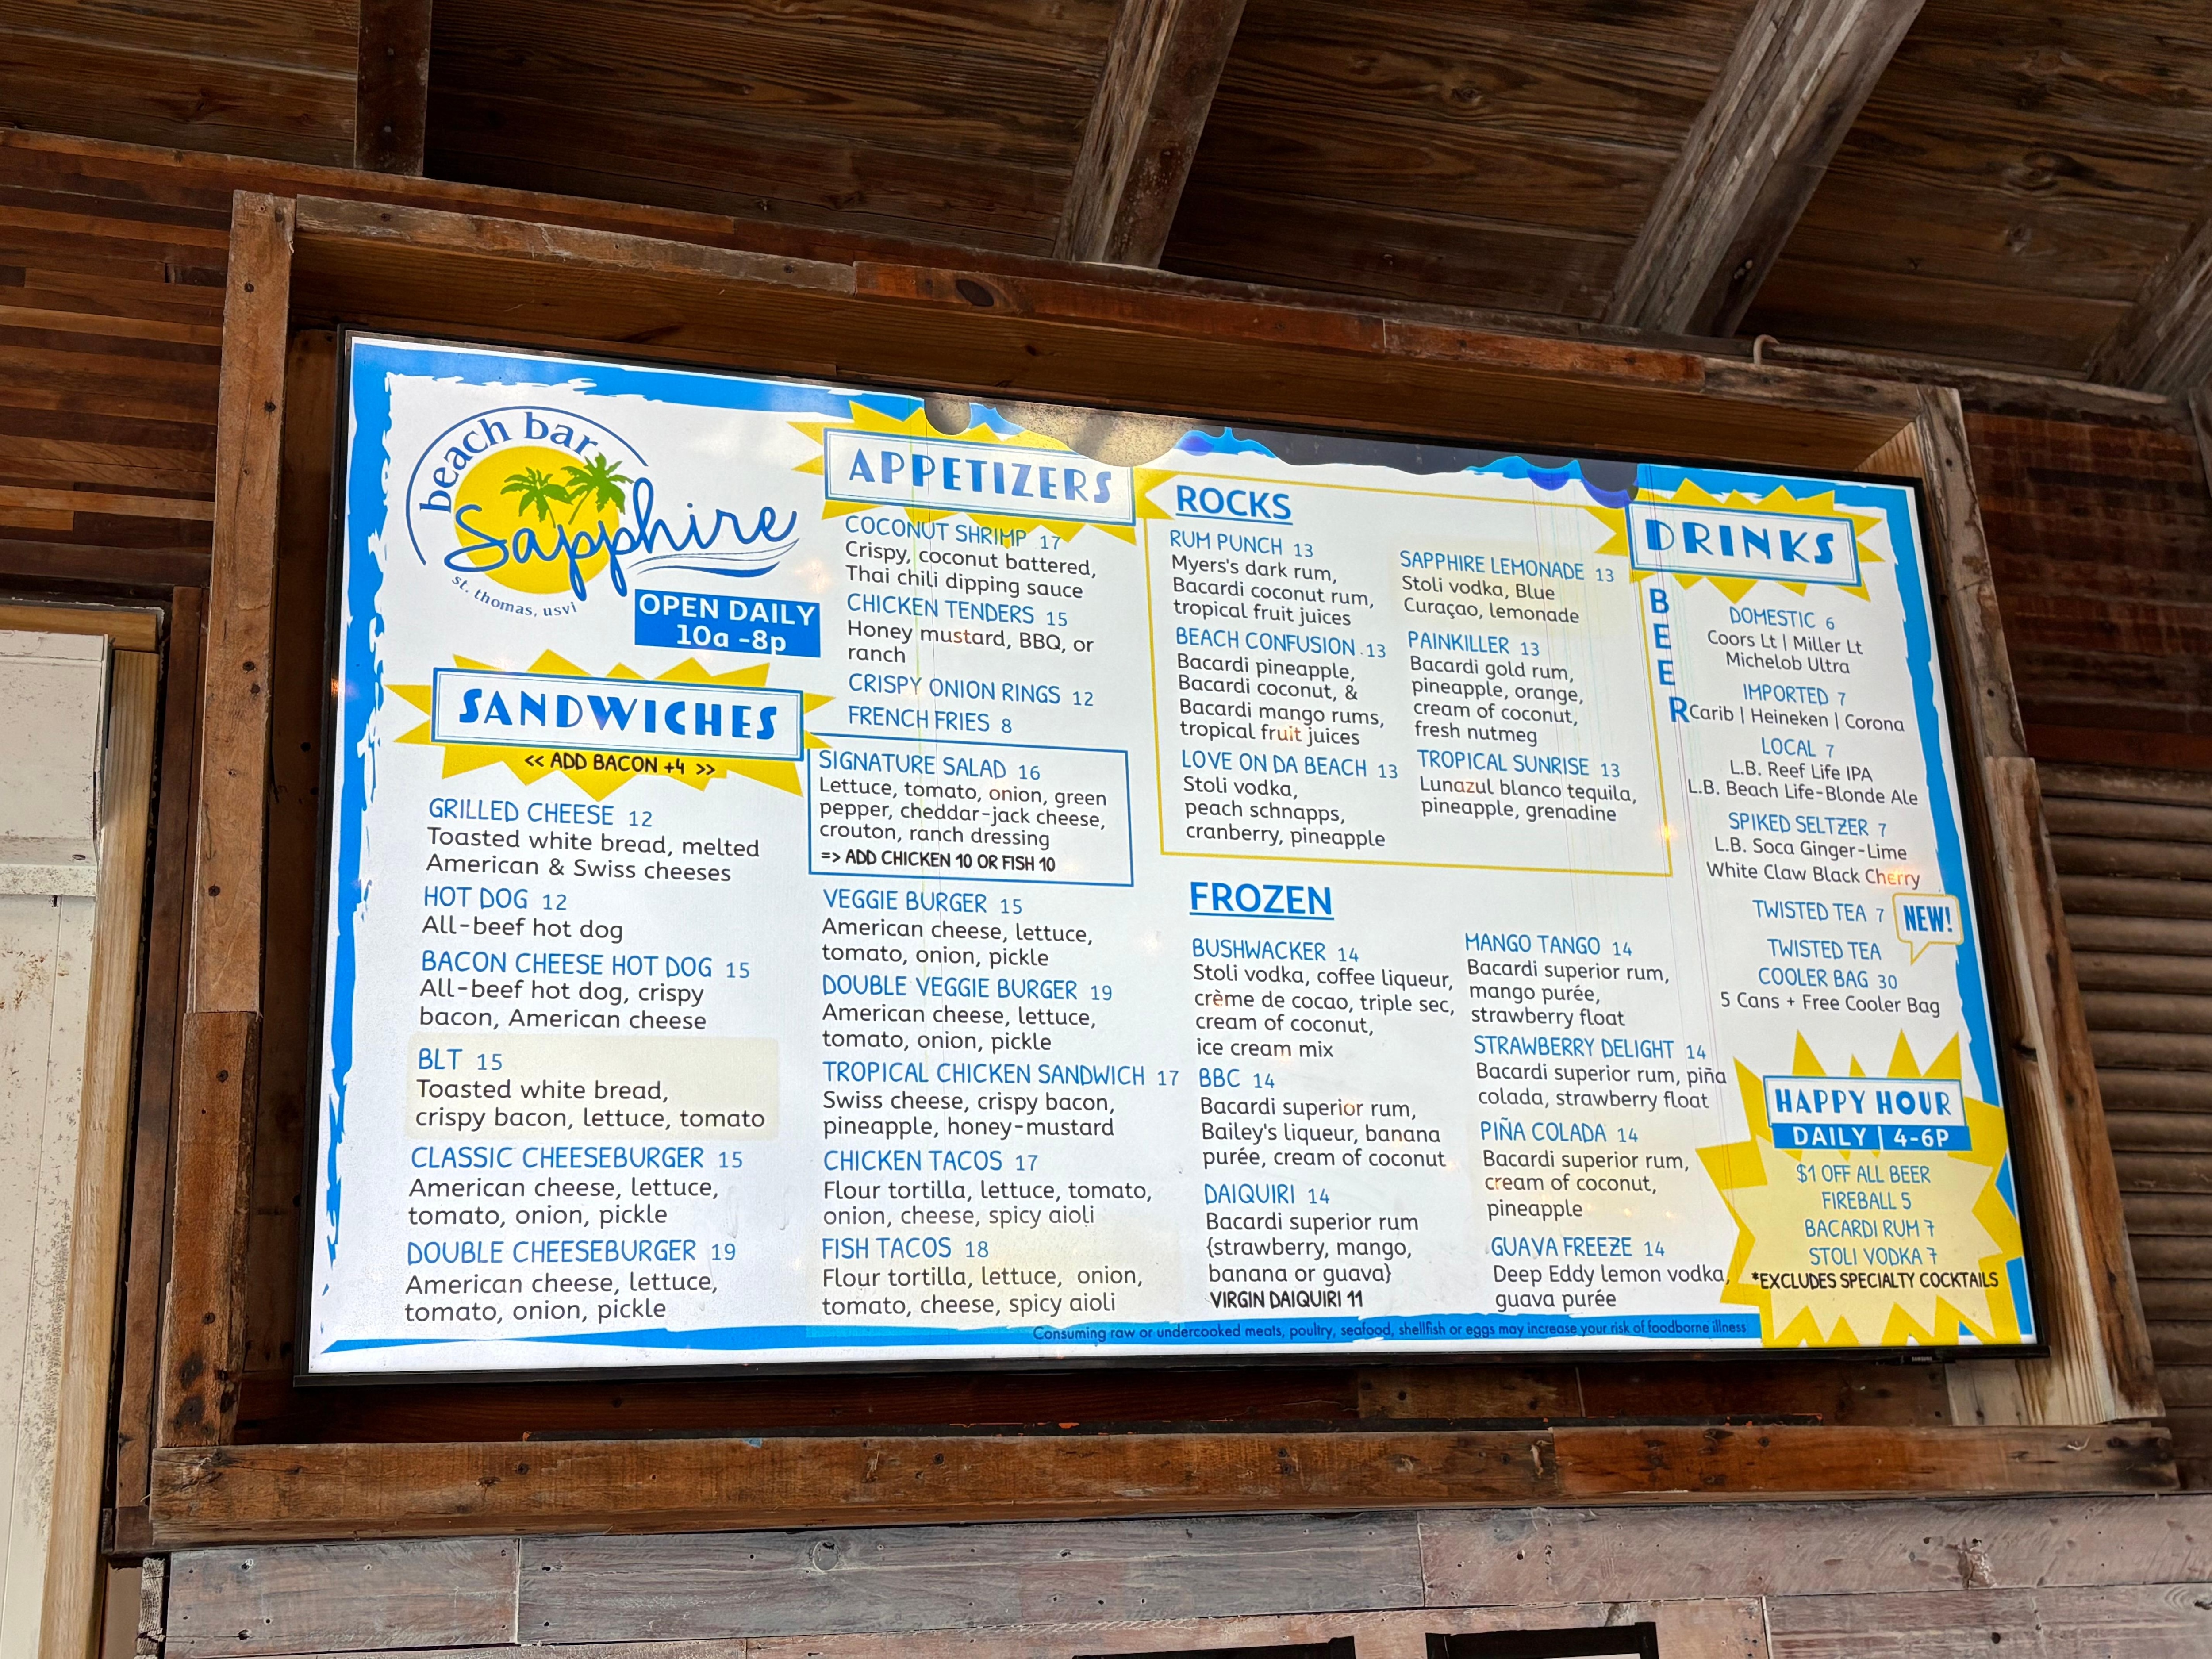 beach bar
Sapphire
st. thomas, usvi
OPEN DAILY
10a -8p
SANDWICHES
<< ADD BACON +4 >>
GRILLED CHEESE 12
Toasted white bread, melted
American & Swiss cheeses
HOT DOG 12
All-beef hot dog
BACON CHEESE HOT DOG 15
All-beef hot dog, crispy
bacon, American cheese
BLT 15
Toasted white bread,
crispy bacon, lettuce, tomato
CLASSIC CHEESEBURGER 15
American cheese, lettuce,
tomato, onion, pickle
DOUBLE CHEESEBURGER 19
American cheese, lettuce,
tomato, onion, pickle
APPETIZERS
COCONUT SHRIMP 17
Crispy, coconut battered,
Thai chili dipping sauce
CHICKEN TENDERS 15
Honey mustard, BBQ, or
ranch
CRISPY ONION RINGS 12
FRENCH FRIES 8
SIGNATURE SALAD 16
Lettuce, tomato, onion, green
pepper, cheddar-jack cheese,
crouton, ranch dressing
=> ADD CHICKEN 10 OR FISH 10
VEGGIE BURGER 15
American cheese, lettuce,
tomato, onion, pickle
DOUBLE VEGGIE BURGER 19
American cheese, lettuce,
tomato, onion, pickle
TROPICAL CHICKEN SANDWICH 17
Swiss cheese, crispy bacon,
pineapple, honey-mustard
CHICKEN TACOS 17
Flour tortilla, lettuce, tomato,
onion, cheese, spicy aioli
FISH TACOS 18
Flour tortilla, lettuce, onion,
tomato, cheese, spicy aioli
ROCKS
RUM PUNCH 13
Myers's dark rum,
Bacardi coconut rum,
tropical fruit juices
BEACH CONFUSION . 13
Bacardi pineapple,
Bacardi coconut, &
Bacardi mango rums,
tropical fruit juices
LOVE ON DA BEACH 13
Stoli vodka,
peach schnapps,
cranberry, pineapple
SAPPHIRE LEMONADE 13
Stoli vodka, Blue
Curaçao, lemonade
PAINKILLER 13
Bacardi gold rum,
pineapple, orange,
cream of coconut,
fresh nutmeg
TROPICAL SUNRISE 13
Lunazul blanco tequila,
pineapple, grenadine
FROZEN
BUSHWACKER 14
Stoli vodka, coffee liqueur,
crème de cocao, triple sec,
cream of coconut,
ice cream mix
BBC 14
Bacardi superior rum,
Bailey's liqueur, banana
purée, cream of coconut
DAIQUIRI 14
Bacardi superior rum
{strawberry, mango,
banana or guava}
VIRGIN DAIQUIRI 11
MANGO TANGO 14
Bacardi superior rum,
mango purée,
strawberry float
STRAWBERRY DELIGHT 14
Bacardi superior rum, piña
colada, strawberry float
PIÑA COLADA 14
Bacardi superior rum,
cream of coconut,
pineapple
GUAVA FREEZE 14
Deep Eddy lemon vodka,
guava purée
DRINKS
BEER
DOMESTIC 6
Coors Lt | Miller Lt
Michelob Ultra
IMPORTED 7
Carib | Heineken | Corona
LOCAL 7
L.B. Reef Life IPA
L.B. Beach Life-Blonde Ale
SPIKED SELTZER 7
L.B. Soca Ginger-Lime
White Claw Black Cherry
TWISTED TEA 7
NEW!
TWISTED TEA
COOLER BAG 30
5 Cans + Free Cooler Bag
HAPPY HOUR
DAILY | 4-6P
$1 OFF ALL BEER
FIREBALL 5
BACARDI RUM 7
STOLI VODKA 7
*EXCLUDES SPECIALTY COCKTAILS
Consuming raw or undercooked meats, poultry, seafood, shellfish or eggs may increase your risk of foodborne illness
SAMSUNG